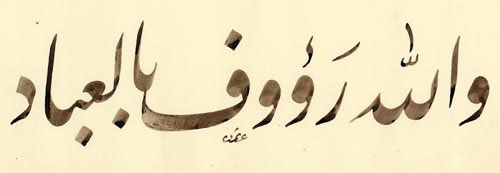 والله رَؤُوف بالعباد